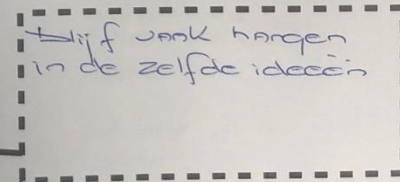 blijf vaak hangen
in de zelfde ideeën